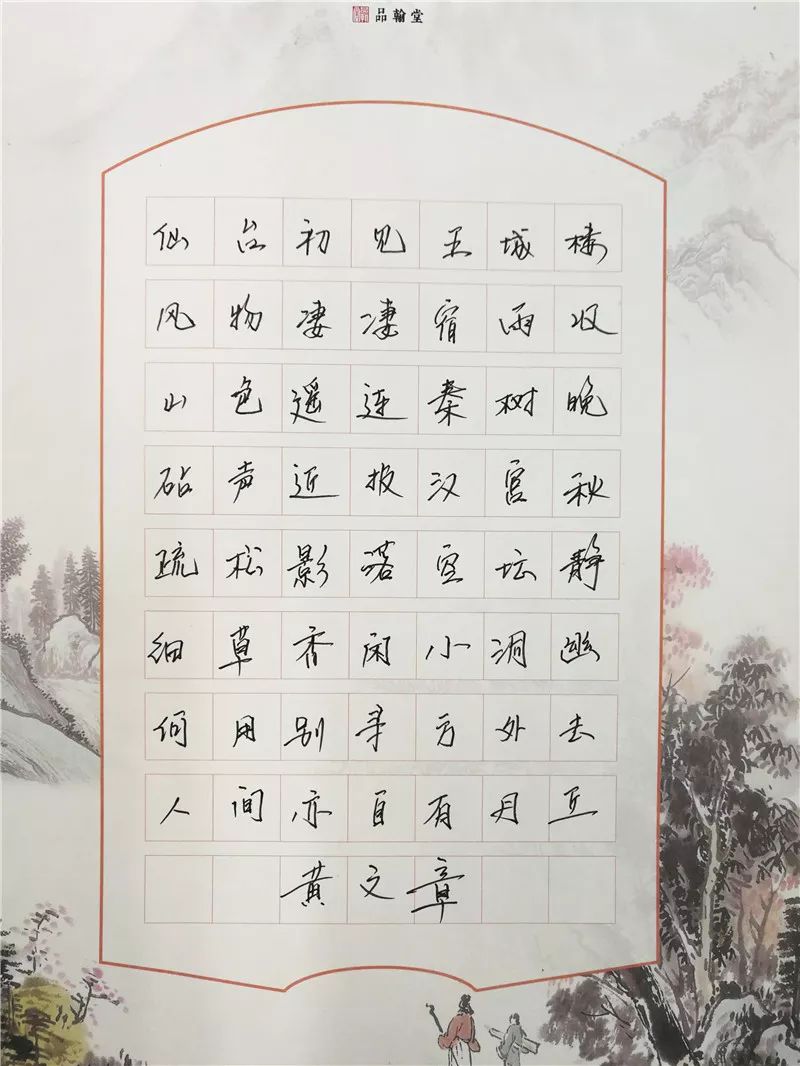 品翰堂
仙台初见五城楼
风物凄凄宿雨收
山色遥连秦树晚
砧声近报汉宫秋
疏松影落空坛静
细草香闲小洞幽
何用别寻方外去
人间亦自有丹丘
黄文章